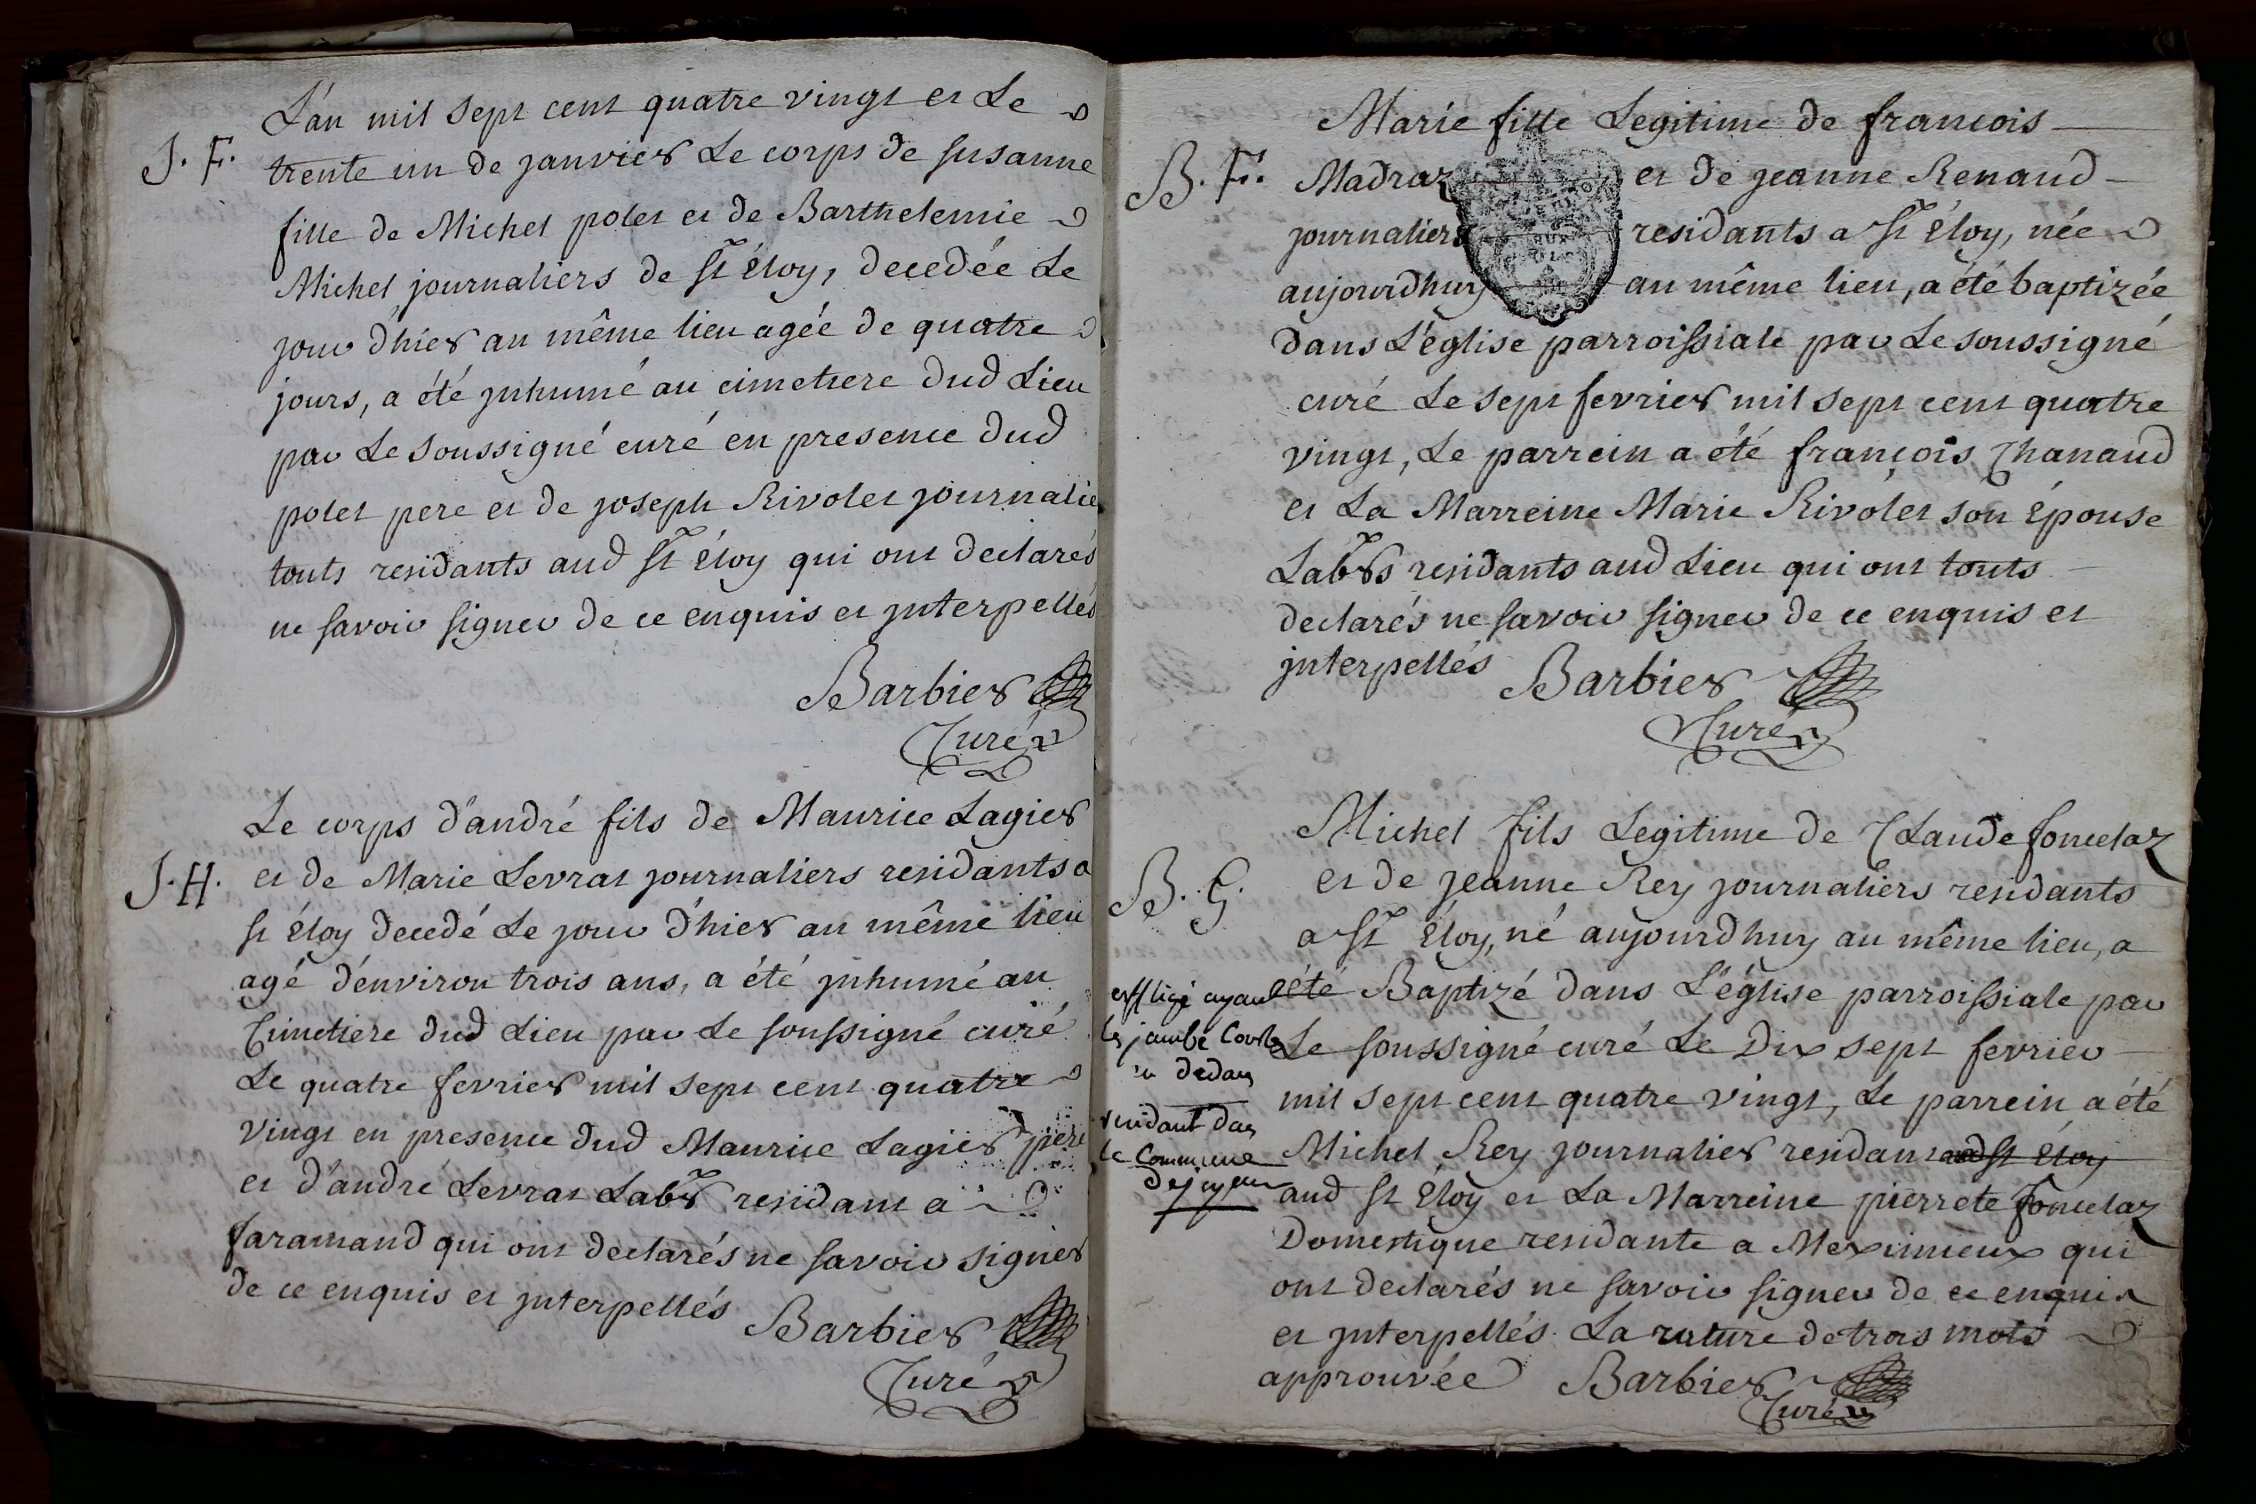 L'an mil sept cent quatre vingt et Le
J. F.
trente un de janvier Le corps de susanne
fille de Michel polet et de Barthelemie
Michel journaliers de St Éloy, decedée Le
jour d'hier au même lieu agée de quatre
jours, a été jnhumé au cimetiere dud Lieu
par Le soussigné curé en presence dud
polet pere et de joseph Rivolet journalie
touts residants aud St Éloy qui ont declarés
ne savoir signer de ce enquis et jnterpellés
Barbier
Curé
Le corps d'andré fils de Maurice Lagier
J. H.
et de Marie Levrat journaliers residants a
St Éloy decedé Le jour d'hier au même lieu
agé d'environ trois ans, a été jnhumé au
Cimetiere dud Lieu par Le soussigné curé
Le quatre fevrier mil sept cent quatre
vingt en presence dud Maurice Lagier pere
et d'andré Levrat Labr residant a
faramand qui ont declarés ne savoir signer
de ce enquis et jnterpellés
Barbier
Curé
Marie fille Legitime de francois
B. F.
Madraz et de jeanne Renaud
journaliers residants a St Éloy, née
aujourdhuy au même lieu, a été baptizée
dans L'église parroissiale par Le soussigné
curé Le sept fevrier mil sept cent quatre
vingt, Le parrein a été françois Chanaud
et La Marreine Marie Rivolet son Épouse
Labrs residants aud Lieu qui ont touts
declarés ne savoir signer de ce enquis et
jnterpellés Barbier
Curé
Michel fils Legitime de Claude foncelaz
B. G.
et de jeanne Rey journaliers residants
a St Éloy, né aujourdhuy au même lieu, a
été Baptizé dans L'église parroissiale par
Le soussigné curé Le Dix sept fevrier
mil sept cent quatre vingt, Le parrein a été
Michel Rey journalier residant aud St Éloy
aud St Éloy et La Marreine pierrete foncelaz
Domestique residante a Meximieux qui
ont declarés ne savoir signer de ce enquis
et jnterpellés. La rature de trois mots
approuvée Barbier
Curé
affligé ayant
les jambe Courbe
en dedan
residant dan
le Commune